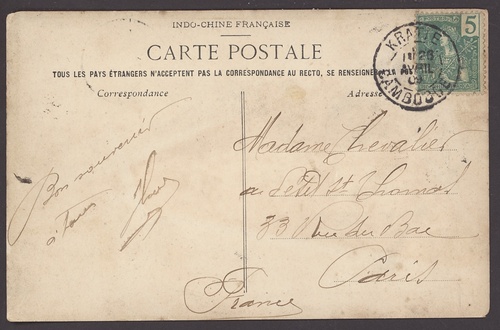 INDO-CHINE FRANÇAISE
CARTE POSTALE
TOUS LES PAYS ÉTRANGERS N'ACCEPTENT PAS LA CORRESPONDANCE AU RECTO, SE RENSEIGNER
Correspondance
Adresse
5
KRATIE
26
AVRIL
CAMBODGE
Bon souvenir
à Tous
Madame Chevalier
au Petit St Thomas
33 Rue du Bac
Paris
France